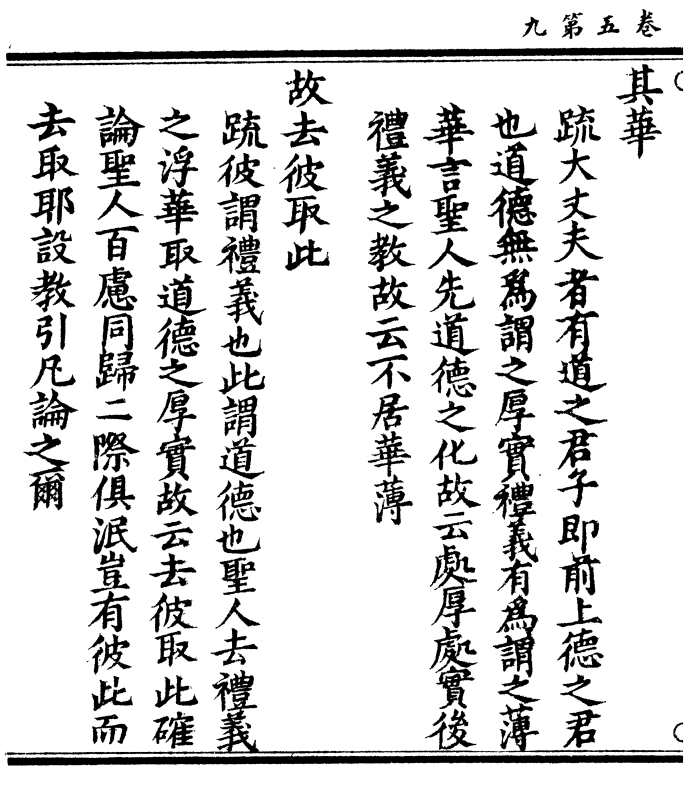 卷五第九
其華
疏大丈夫者有道之君子即前上德之君
也道德無爲謂之厚實禮義有爲謂之薄
華言聖人先道德之化故云處厚處實後
禮義之教故云不居華薄
故去彼取此
疏彼謂禮義也此謂道德也聖人去禮義
之浮華取道德之厚實故云去彼取此確
論聖人百慮同歸二際俱泯豈有彼此而
去取耶設教引凡論之爾